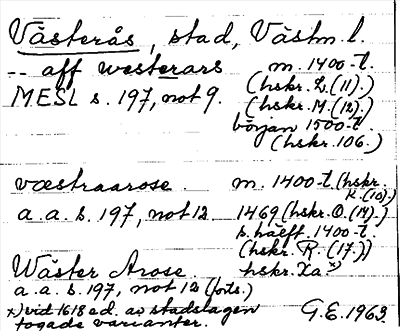 Västerås, stad, Västm. l.
-- aff westerars m. 1400-t.
MESL s. 197, not 9. (hskr. L. (11).)
(hskr. M. (12).)
början 1500-t.
(hskr. 106.)
væstraarose. m. 1400-t. (hskr. K. (10).)
a. a. s. 197, not 12 1469 (hskr. O. (14).)
s. hälft. 1400-t.
(hskr. R. (17.))
Wäster Arose. hskr. Xa x)
a. a. s. 197, not 12 (forts.)
x) vid 1618 ed. av stadslagen
fogade varianter. G.E. 1963